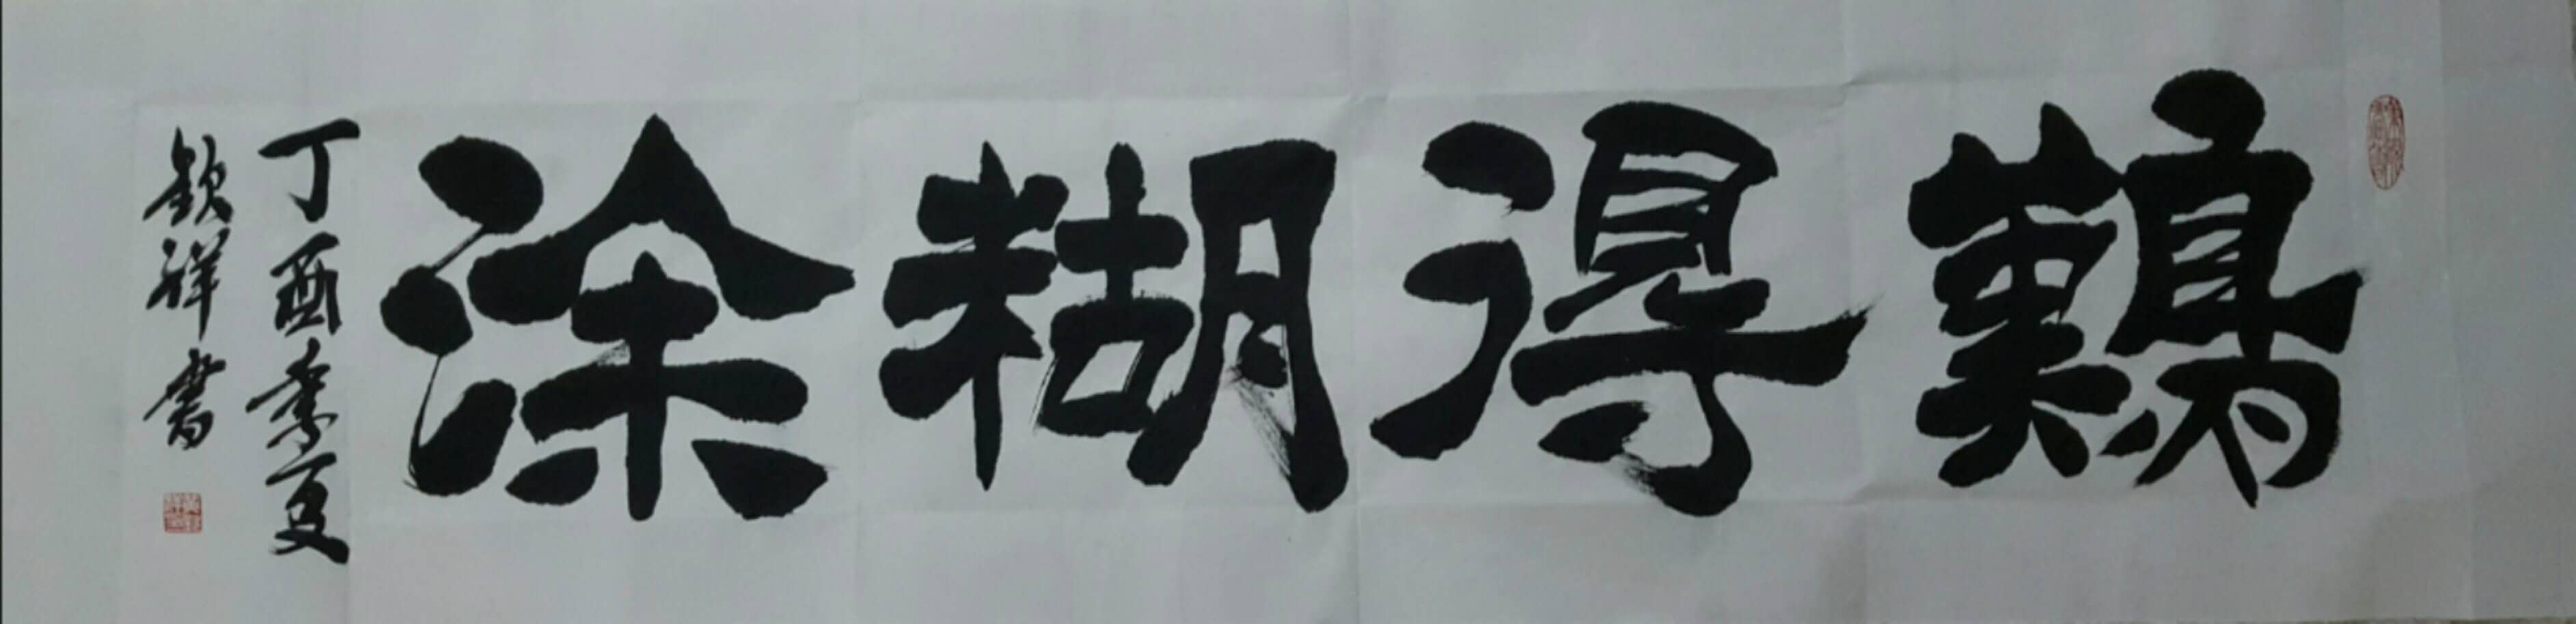 難得糊涂
丁酉季夏
欽祥書